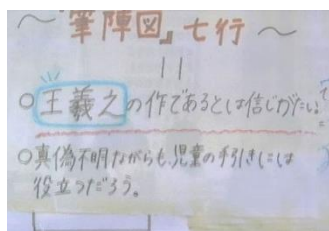 ～『筆陣図』七行～
○王羲之の作であるとは信じがたい。
○真偽不明ながらも、児童の手引きには
役立つだろう。